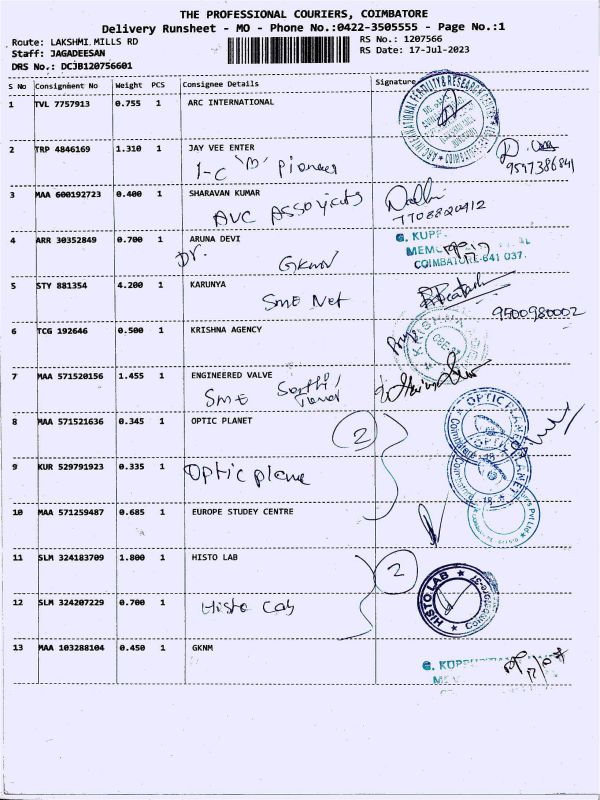 THE PROFESSIONAL COURIERS, COIMBATORE
Delivery Runsheet - MO - Phone No.:0422-3505555 - Page No.:1
Route: LAKSHMI MILLS RD RS No.: 1207566
Staff: JAGADEESAN RS Date: 17-Jul-2023
DRS No.: DCJB120756601
S No Consignment No Weight PCS Consignee Details Signature
1 TVL 7757913 0.755 1 ARC INTERNATIONAL
2 TRP 4846169 1.310 1 JAY VEE ENTER
1-C 'B' Pioneer
9597386841
3 MAA 600192723 0.400 1 SHARAVAN KUMAR
AVC Associates
7708820912
4 ARR 30352849 0.700 1 ARUNA DEVI
Dr. GKNM
G. KUPP
MEM AL
COIMBATORE-641 037.
5 STY 881354 4.200 1 KARUNYA
SME Net
9500980002
6 TCG 192646 0.500 1 KRISHNA AGENCY
7 MAA 571520156 1.455 1 ENGINEERED VALVE
SME
8 MAA 571521636 0.345 1 OPTIC PLANET
2
OPTIC PLANET
9 KUR 529791923 0.335 1
Optic plane
10 MAA 571259487 0.685 1 EUROPE STUDEY CENTRE
11 SLM 324183709 1.800 1 HISTO LAB
2
HISTO LAB
12 SLM 324207229 0.700 1
Histo Lab
13 MAA 103288104 0.450 1 GKNM
G. KUPP